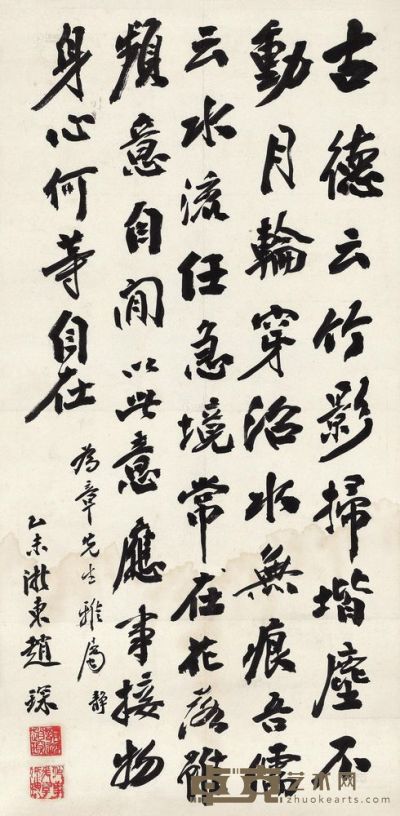 古德云竹影掃堦塵不
動月輪穿沼水無痕吾儒
云水流任急境常在花落雖
頻意自閒以此意應事接物
身心何等自在
為章先生雅屬 靜
乙未浙東趙琛
卓克艺术网
zhuokearts.com